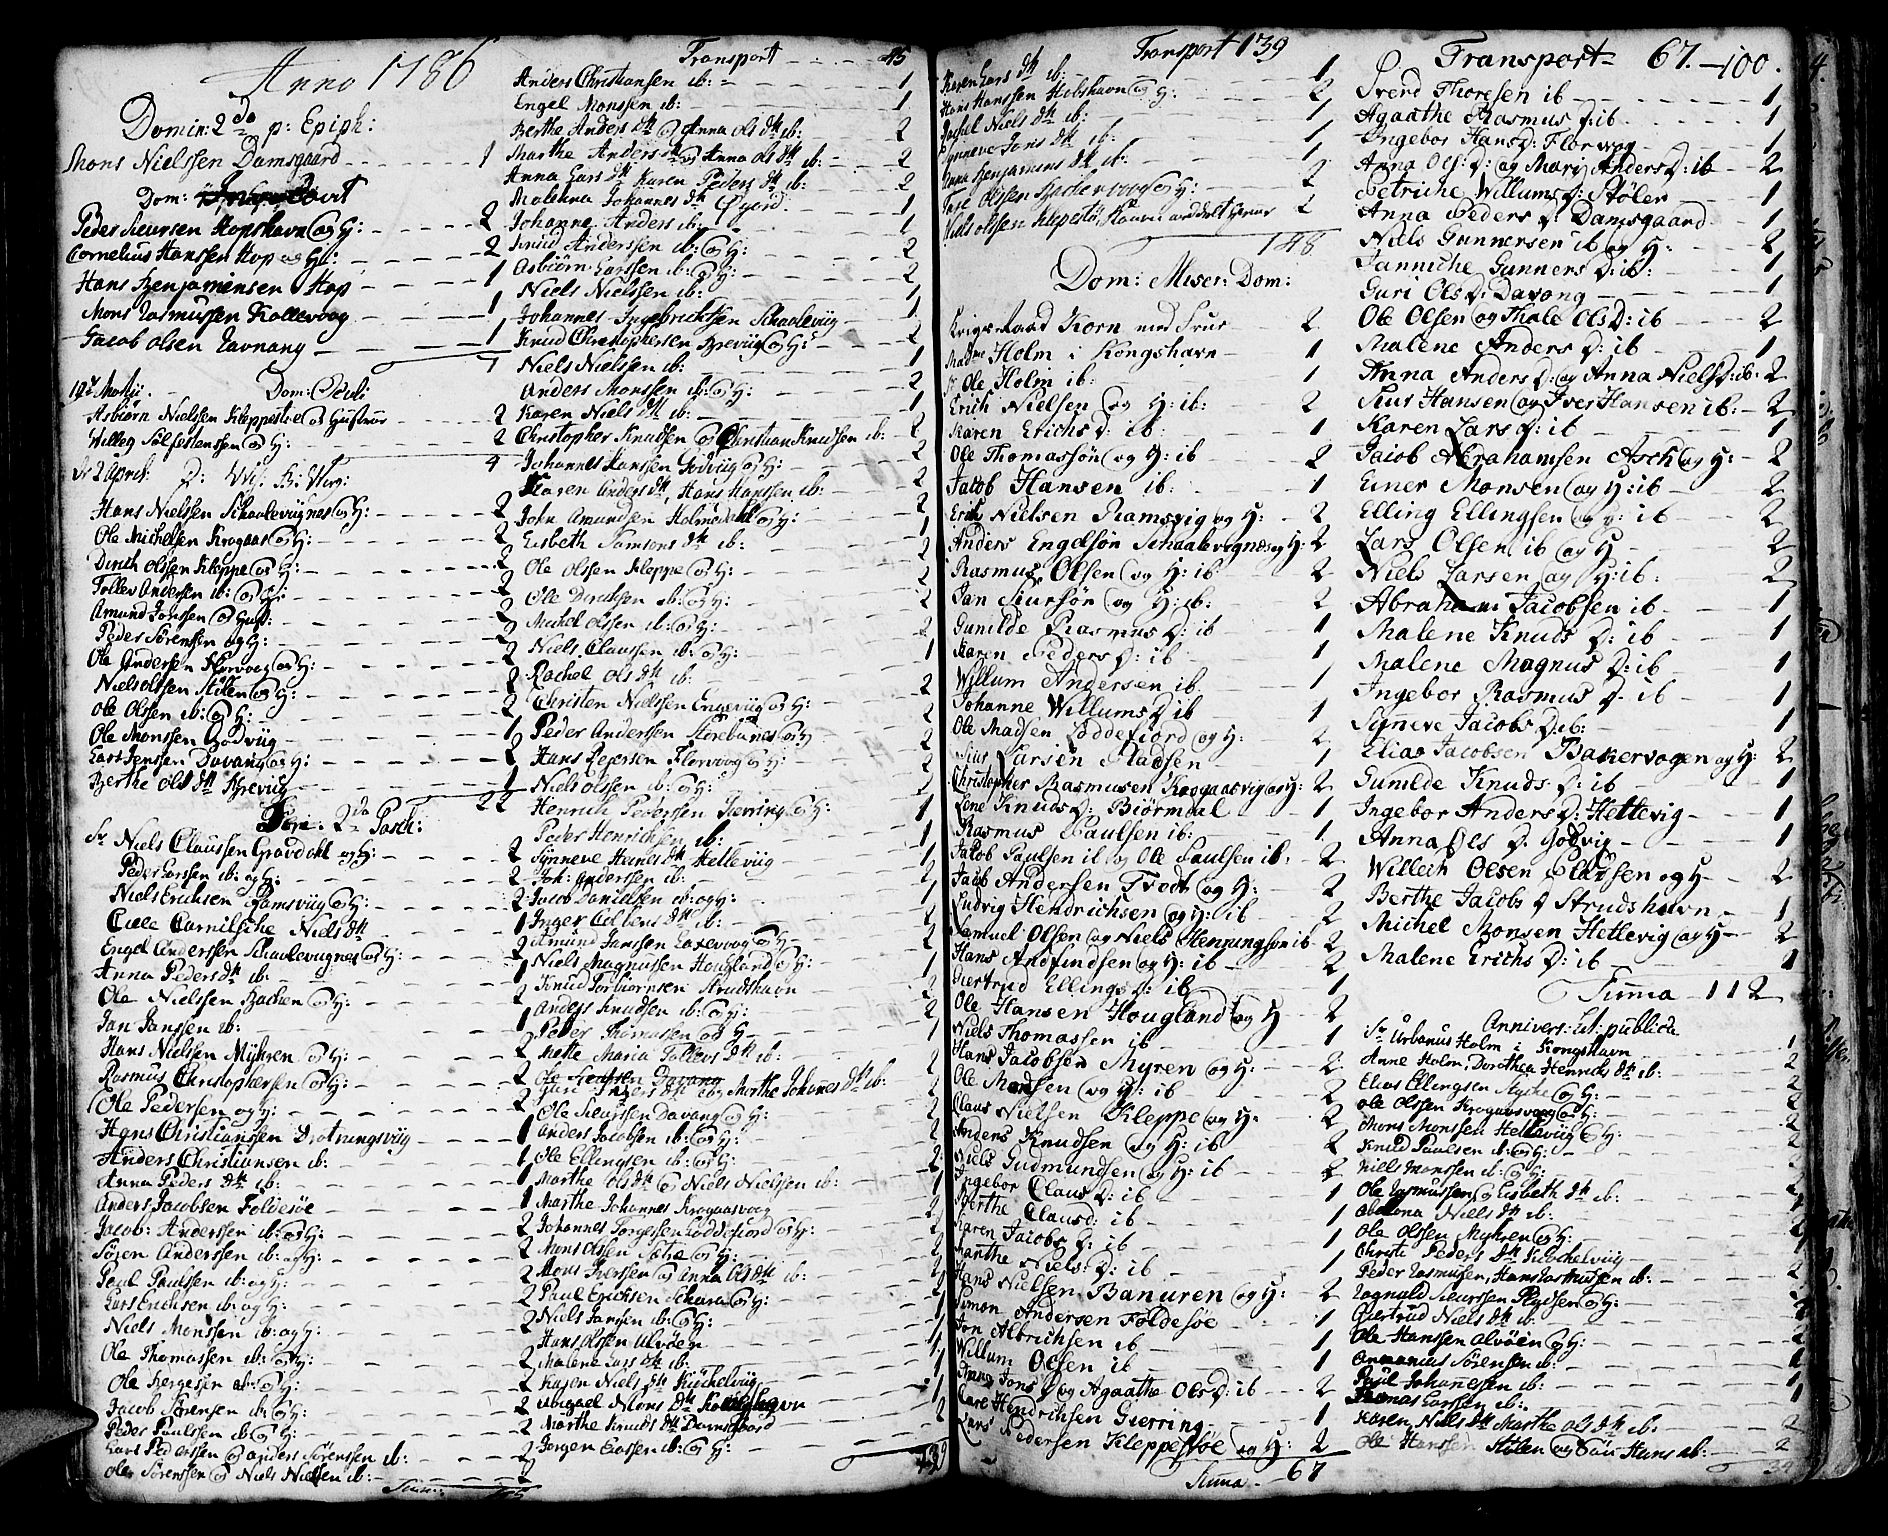 Anno 1786
Domin: 2do p: Epiph:
Mons Nielssen Damsgaard 1
Dom:
Peder Siursen Hopshavn og H: 2
Cornelius Hanssen Hop og H: 2
Hans Benjaminsen Hop 1
Mons Rasmussen Kollevog 1
Jacob Olsen Ravnang 1
7
Dom: Oculi
Asbiörn Nielssen Kleppestöe og Hustrue 2
Willeg Sölfestenssen og H: 2
4
Hans Nielssen Schaaleviignes og H: 2
Ole Michelsen Krogaas og H: 2
Dirich Olssen Kleppe og H: 2
Tollev Andersen ib: og H: 2
Amund Jonssen og Hust: 2
Peder Sörenssen og H: 2
Ole Andersen Florvog og H: 2
Niels Olssen Stölen og H: 2
Ole Olssen ib: og H: 2
Ole Monssen Godviig 1
Lars Jenssen Davang og H: 2
Berthe Ols dtr Breviig 1
22
2da Pasch:
Sr Niels Claussen Gravdahl og H: 2
Peder Larssen ib: og H: 2
Niels Erichsen Ramsviig og H: 2
Niels dtr 1
Engel Anderssen Schaaleviignes og H: 2
Anna Peders dtr ib: 1
Ole Nielssen Backen og H: 2
Jan Janssen ib: 1
Hans Nielsen Myhren og H: 2
Rasmus Christophersen og H: 2
Ole Pedersen og H: 2
Hans Christianssen Drotningsviig 1
Anders Christiansen ib: 1
Anna Peders dtr ib: 1
Anders Jacobsen Foldesöe 1
Jacob Anderssen ib: og H: 2
Sören Anderssen ib: og H: 2
Paul Paulssen ib: og H: 2
Lars Erichsen ib: og H: 2
Niels Monssen ib: og H: 2
Ole Thomassen ib: og H: 2
Ole Bergesen ib: og H: 2
Jacob Sörensen ib: og H: 2
Peder Paulssen ib: og H: 2
Lars Pederssen og Anders Sörenssen ib: 2
Ole Sörenssen og Niels Nielsen ib: 2
Transport 45
Anders Christiansen ib: 1
Engel Monssen ib: 1
Berthe Anders dtr og Anna Ols dtr ib: 2
Marthe Anders dtr og Anna Ols dtr ib: 2
Anna Lars dtr Karen Peders dtr ib: 2
Malehna Johannes dtr 1
Johanne Anders ib: 1
Knud Anderssen ib: og H: 2
Asbiörn Larssen ib: og H: 2
Niels Nielssen ib: 1
Johannes Ingebrichtsen Schaaleviig 1
Knud Christophersen Breviig og H: 2
Niels Nielssen ib: 1
Anders Monssen ib: og H: 2
Karen Niels dtr ib: 1
Christopher Knudsen og Christian Knudsen ib: 2
Johannes Hanssen Godviig og H:
Karen Anders dtr, Hans Hanssen ib:
John Amundsen Holmedahl og H:
Lisbeth Samsons dtr ib:
Ole Olssen Kleppe og H:
Ole Dirichsen ib: og H:
Michel Olssen ib: og H:
Niels Claussen ib: og H:
Rachel Ols dtr ib:
Christen Nielssen Engeviig og H:
Peder Anderssen Storebunes og H:
Hans Pedersen Florvog og H:
Niels Olssen ib: og H:
Henrich Pederssen Gierring og H:
Peder Henrichsen ib:
Synneve Heines dtr Hetleviig
Joh: Anderssen ib:
Jacob Danielssen ib: og H:
Amund Janssen og H:
Niels Magnussen Hougland og H:
Knud Torbiörnsen Strudshavn
Anders Knudsen ib: og H:
Peder Thomassen og H:
Mette Maria Tollevs dtr ib:
Ole Siursen Davang
Marthe Johannes dtr ib:
Ole Siurssen Davang og H:
Anders Jacobsen ib: og H:
Ole Ellingsen ib: og H:
Marthe Ols dtr og Niels Nielssen ib:
Marthe Johannes Krogaasvog
Johannes Törgessen Loddefiord og H:
Mons Olssen og H:
Mons Iverssen og Anna Ols dtr ib:
Paul Erichsen og H:
Niels Jansen ib: og H:
Hans Olssen Alvöen
Malene Lars dtr ib:
Karen Niels dtr Kiöckelviig
Abigael Mons dtr
Marthe Knuds dtr Damsgaard
Jorgen Larssen ib: og H:
139
Transport 139
Karen Lars dtr ib: 1
Hans Hanssen og H: 2
Rachel Niels dtr ib: 1
Synneve Jons dtr ib: 1
Anna Benjamins dtr ib: 1
Tore Olssen Backervogen og H: 2
Niels Olssen Klepestö 2
148
Dom: Miser: Dom:
Krigs Raad Korn med Frue 2
Madme Holm i Kongshavn 1
Sr Ole Holm ib: 1
Erich Nielsen og H: ib: 2
Karen Erichs D: ib: 1
Ole Thomassön og H: ib 2
Jacob Hansen ib: 1
Erich Nielsen Ramsvig og H: 2
Anders Engelsön Schaalevignes og H: 2
Rasmus Olsen og H: ib 2
Jan Siursön og H: ib: 2
Gunilde Rasmus D: ib 1
Karen Peders D: ib 1
Willum Andersen ib 1
Johanne Willums D: ib 1
Ole Madsen Loddefiord og H: 2
Sius Larsen Pladsen 1
Christopher Rasmusen Krogaasvig og H: 2
Lene Knuds D: Biörndal 1
Rasmus Paulsen ib: 1
Jacob Paulsen ib og Ole Paulsen ib: 2
Jacob Andersen Trodt og H: 2
Ludvig Hendrichsen og H: ib 2
Samuel Olsen og Niels Henningsön ib 2
Hans Andfindsen og H: ib 2
Giertrud Ellings D: ib 1
Ole Hansen Hougland og H 2
Niels Thomassen ib 1
Hans Jacobsen Myren og H: 2
Ole Madsen og H: ib 2
Claus Nielsen Kleppe og H: 2
Anders Knudsen og H: ib 2
Niels Gudmundsen og H: ib 2
Ingebor Claus D: ib 1
Berthe Claus D: ib 1
Karen Jacobs D: ib 1
Marthe Niels D: ib 1
Hans Nielsen Banuren og H: 2
Simon Andersen Foldesöe 1
Jon Albrichsen ib 1
Willum Olsen ib 1
Anna Jons D og Agaathe Ols D: ib 2
Lars Hendrichsen Gierring 1
Lars Pedersen Kleppestöe og H: 2
Summa 67
Transport 67. 100.
Svend Thoresen ib 1
Agaathe Rasmus D: ib 1
Ingebor Hans D: Florvog 1
Anna Ols: D: og Mari Anders D: ib 2
Petriche Willums D: Stölen 1
Anna Peders D: Damsgaard 1
Niels Gunnersen ib og H: 2
Janniche Gunners D: ib: 1
Guri Ols D: Davang 1
Ole Olsen og Thale Ols D: ib 2
Malene Anders D: ib 1
Anna Anders D: og Anna Niels D: ib. 2
Sius Hansen og Iver Hansen ib: 2
Karen Lars D: ib 1
Jacob Abrahamsen Ask og H: 2
Einer Monsen og H: ib 2
Elling Ellingsen og H: ib 2
Lars Olsen ib og H 2
Niels Larsen og H: ib: 2
Abraham Jacobsen ib 1
Malene Knuds D: ib 1
Malene Magnus D: ib 1
Ingebor Rasmus D: ib 1
Signeve Jacobs D: ib: 1
Elias Jacobsen Bakervogen og H: 2
Gunilde Knuds D: ib 1
Ingebor Anders D: Hettevig 1
Anna Ols D. Godvig 1
Willech Olsen Pladsen og H 2
Berthe Jacobs D Strudshavn 1
Michel Monsen Hetlevig og H 2
Malene Erichs D: ib 1
Summa 112
Annivers: Lit: publica
Sr Urbanus Holm i Kongshavn 1
Anne Holm, Dorothea Henrichs dtr ib: 2
Elias Ellingsen og H: 2
Ole Olssen Krogaasvog og H: 2
Mons Monssen Hetleviig og H: 2
Knud Paulsen ib: og H: 2
Niels Monssen ib: og H: 2
Ole Rasmussen og Lisbeth dtr ib: 2
Niels dtr ib: 1
Ole Olssen Myhren og H: 2
Christi Peders dtr Kiöckelviig 1
Peder Rasmusen, Hans Rasmussen ib: 2
Ragnald Siurssen Pladsen og H: 2
Giertrud Niels dtr ib: 1
Ole Hanssen Alvöen og H: 2
Annanias Sörenssen ib: 1
Paul Johannessen ib: 1
Thomas Larssen ib: 1
Karen Niels dtr Marthe Ols dtr ib: 2
Ole Hanssen Stölen og Hans ib: 2
34